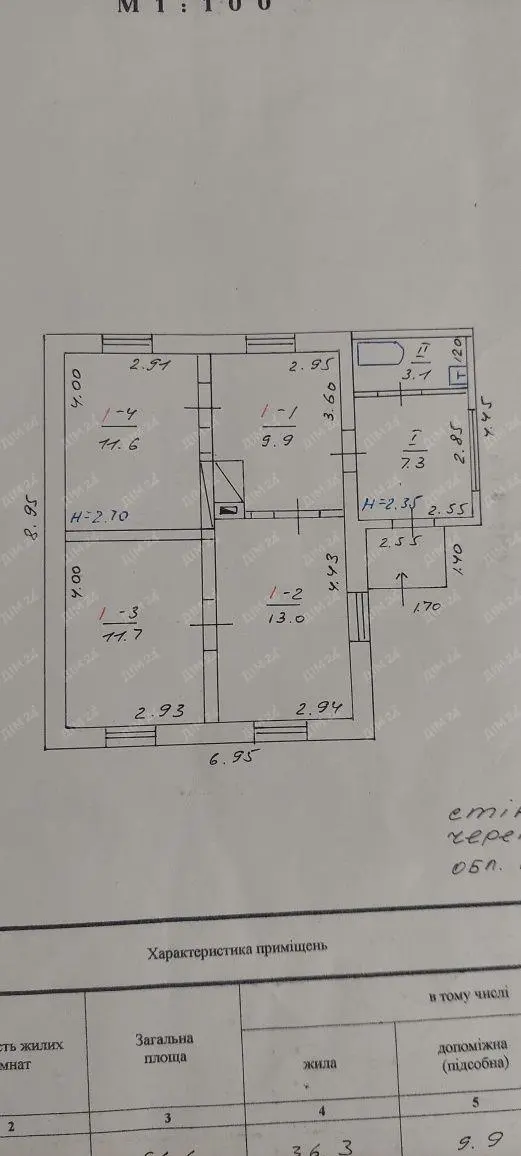 М 1 : 100
2.91
2.95
4.00
1-4
11.6
1-1
9.9
3.60
II
3.1
1.20
Т
I
7.3
2.85
4.45
8.95
H=2.70
H=2.35
2.55
2.55
1.40
1.70
4.00
1-3
11.7
1-2
13.0
4.43
2.93
2.94
6.95
обл.
Характеристика приміщень
в тому числі
Загальна
площа
жила
допоміжна
(підсобна)
2
3
4
5
36.3
9.9
ДІМ24